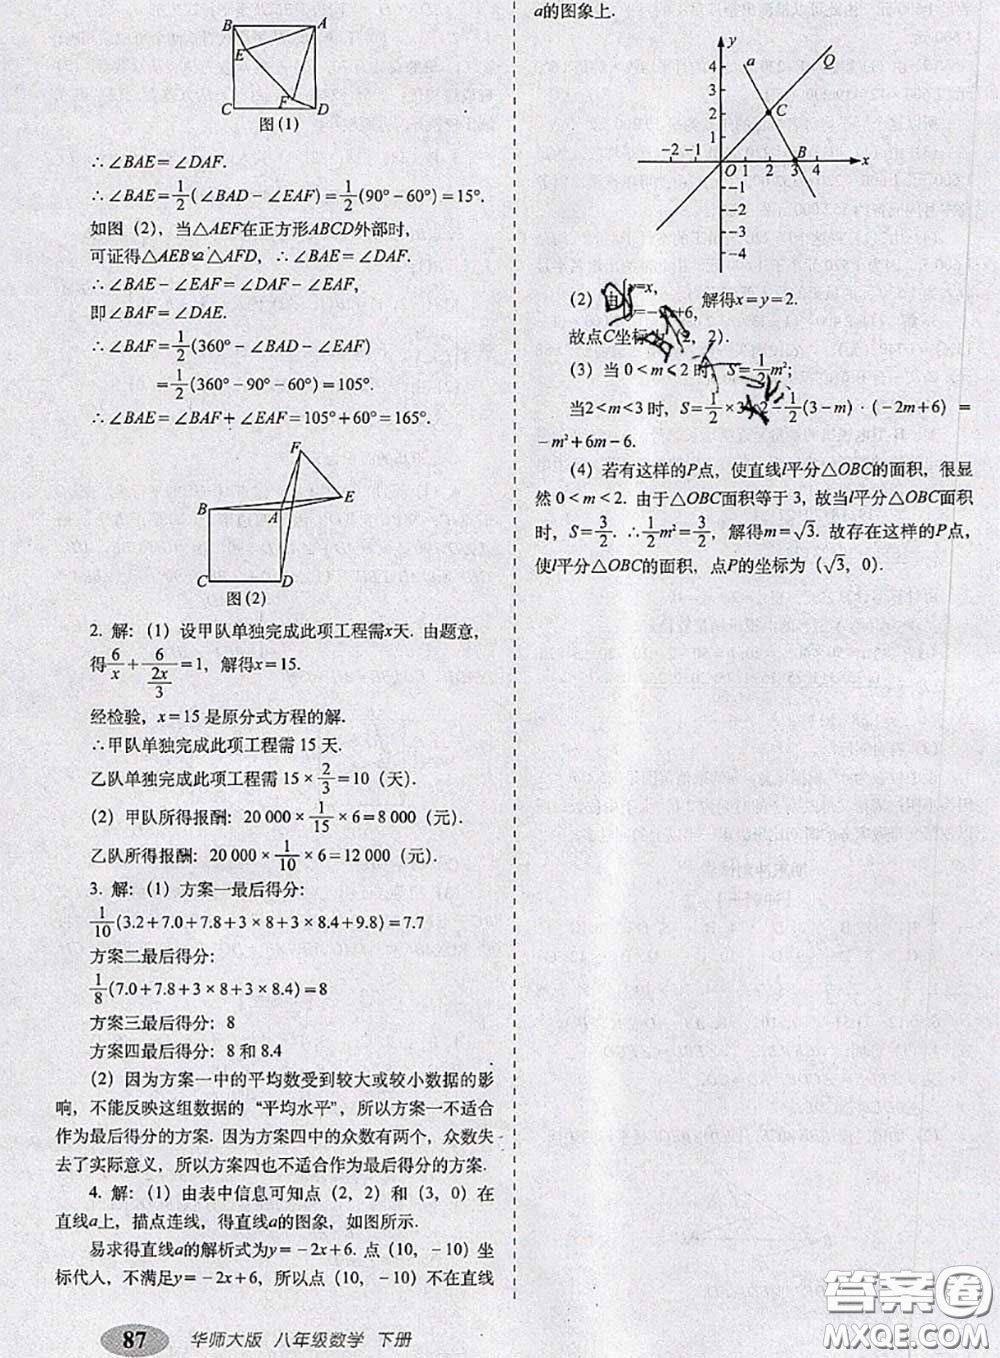 B A
E
F
C D
图(1)
∴∠BAE=∠DAF.
∴∠BAE=1/2(∠BAD-∠EAF)=1/2(90°-60°)=15°.
如图(2),当△AEF在正方形ABCD外部时,
可证得△AEB≌△AFD,∴∠BAE=∠DAF.
∴∠BAE-∠EAF=∠DAF-∠EAF,
即∠BAF=∠DAE.
∴∠BAF=1/2(360°-∠BAD-∠EAF)
=1/2(360°-90°-60°)=105°.
∴∠BAE=∠BAF+∠EAF=105°+60°=165°.
F
E
B A
C D
图(2)
2. 解:(1)设甲队单独完成此项工程需x天. 由题意,
得6/x+6/(2x/3)=1,解得x=15.
经检验,x=15是原分式方程的解.
∴甲队单独完成此项工程需15天.
乙队单独完成此项工程需15×2/3=10(天).
(2)甲队所得报酬:20 000×1/15×6=8 000(元).
乙队所得报酬:20 000×1/10×6=12 000(元).
3. 解:(1)方案一最后得分:
1/10(3.2+7.0+7.8+3×8+3×8.4+9.8)=7.7
方案二最后得分:
1/8(7.0+7.8+3×8+3×8.4)=8
方案三最后得分:8
方案四最后得分:8和8.4
(2)因为方案一中的平均数受到较大或较小数据的影
响,不能反映这组数据的“平均水平”,所以方案一不适合
作为最后得分的方案. 因为方案四中的众数有两个,众数失
去了实际意义,所以方案四也不适合作为最后得分的方案.
4. 解:(1)由表中信息可知点(2,2)和(3,0)在
直线a上,描点连线,得直线a的图象,如图所示.
易求得直线a的解析式为y=-2x+6. 点(10,-10)坐
标代人,不满足y=-2x+6,所以点(10,-10)不在直线
a的图象上.
y
a Q
4
3
2 C
1
-2 -1 O 1 2 3 4 B x
-1
-2
-3
-4
(2)由{y=x, y=-2x+6, 解得x=y=2.
故点C坐标为(2,2).
(3)当0<m<2时,S=1/2m²;
当2<m<3时,S=1/2×3×2-1/2(3-m)·(-2m+6)=
-m²+6m-6.
(4)若有这样的P点,使直线l平分△OBC的面积,很显
然0<m<2. 由于△OBC面积等于3,故当l平分△OBC面积
时,S=3/2. ∴1/2m²=3/2,解得m=√3. 故存在这样的P点,
使l平分△OBC的面积,点P的坐标为(√3,0).
87 华师大版 八年级数学 下册
答案圈
MXQE.COM